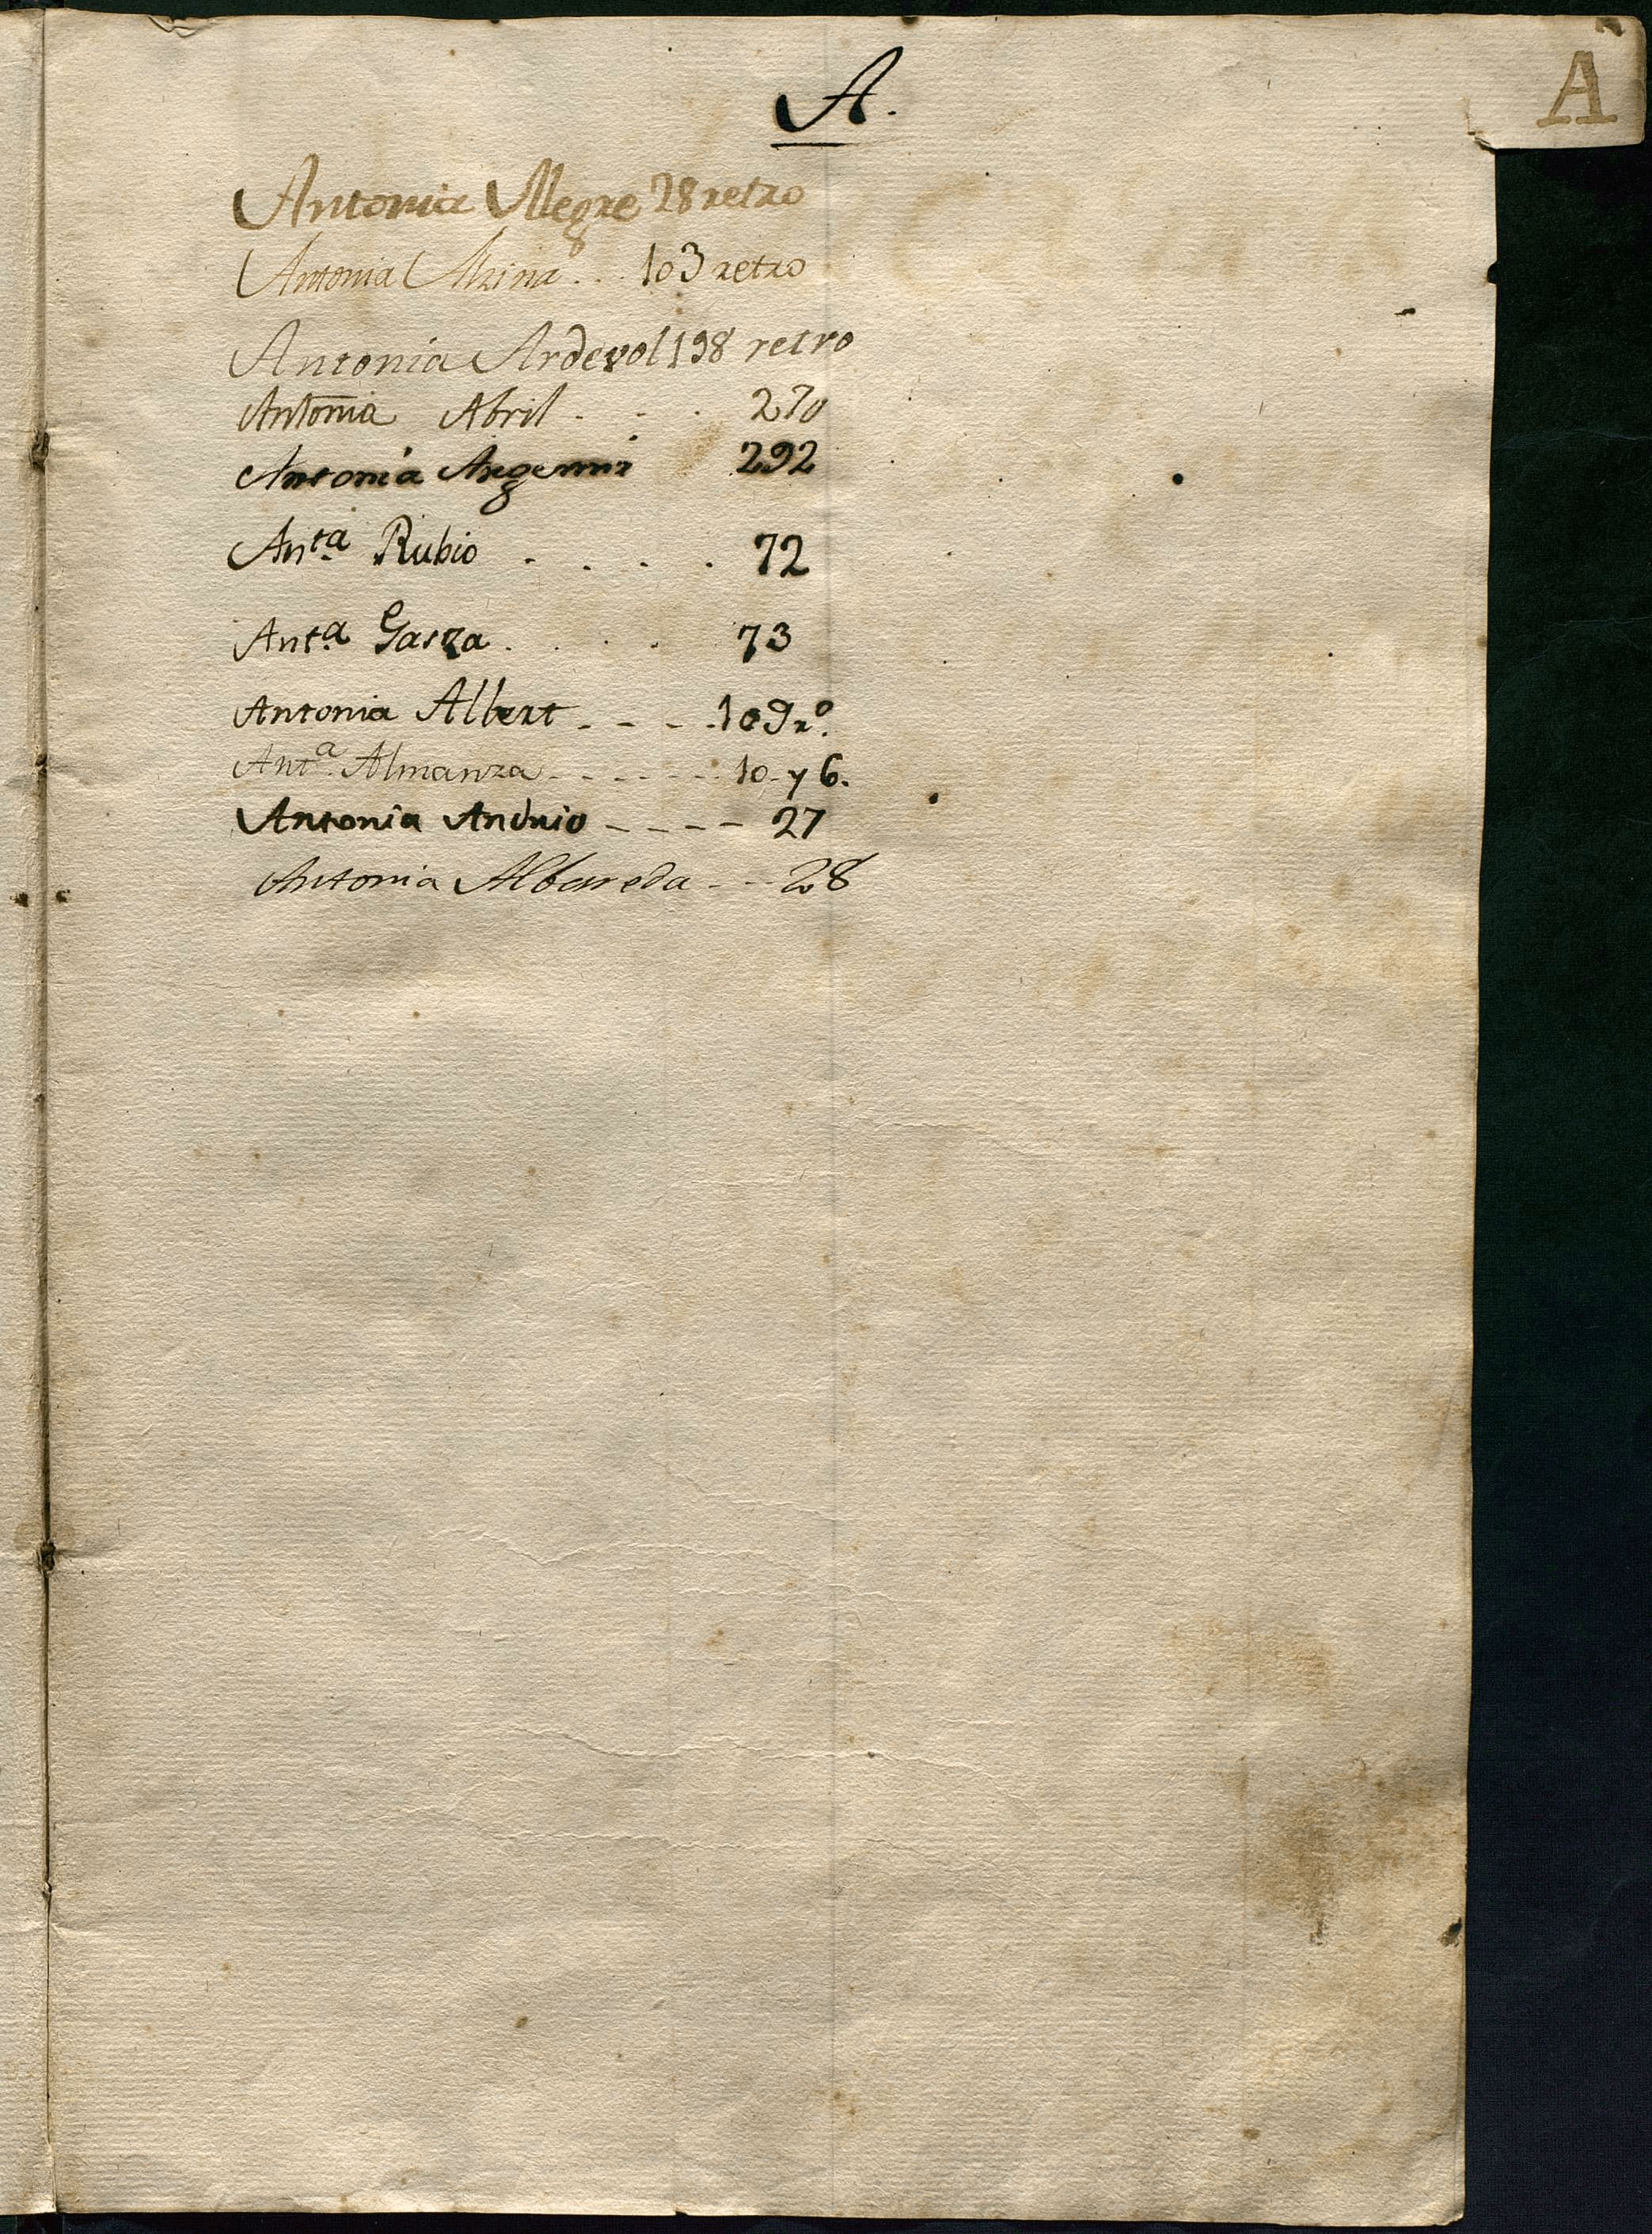 A
A.
Antonia Allegre 28 retro
Antonia Alzina .. 103 retro
Antonia Ardevol 198 retro
Antonia Abril - - . 270
Antonia 292
Ant.a Rubio . . . . 72
Ant.a Gasza . . . . 73
Antonia Albert - - - - 109 r.o
Ant.a Almanza - - - - - - 10 y 6.
Antonia Andnio - - - - 27
Antonia Albareda - - - 28